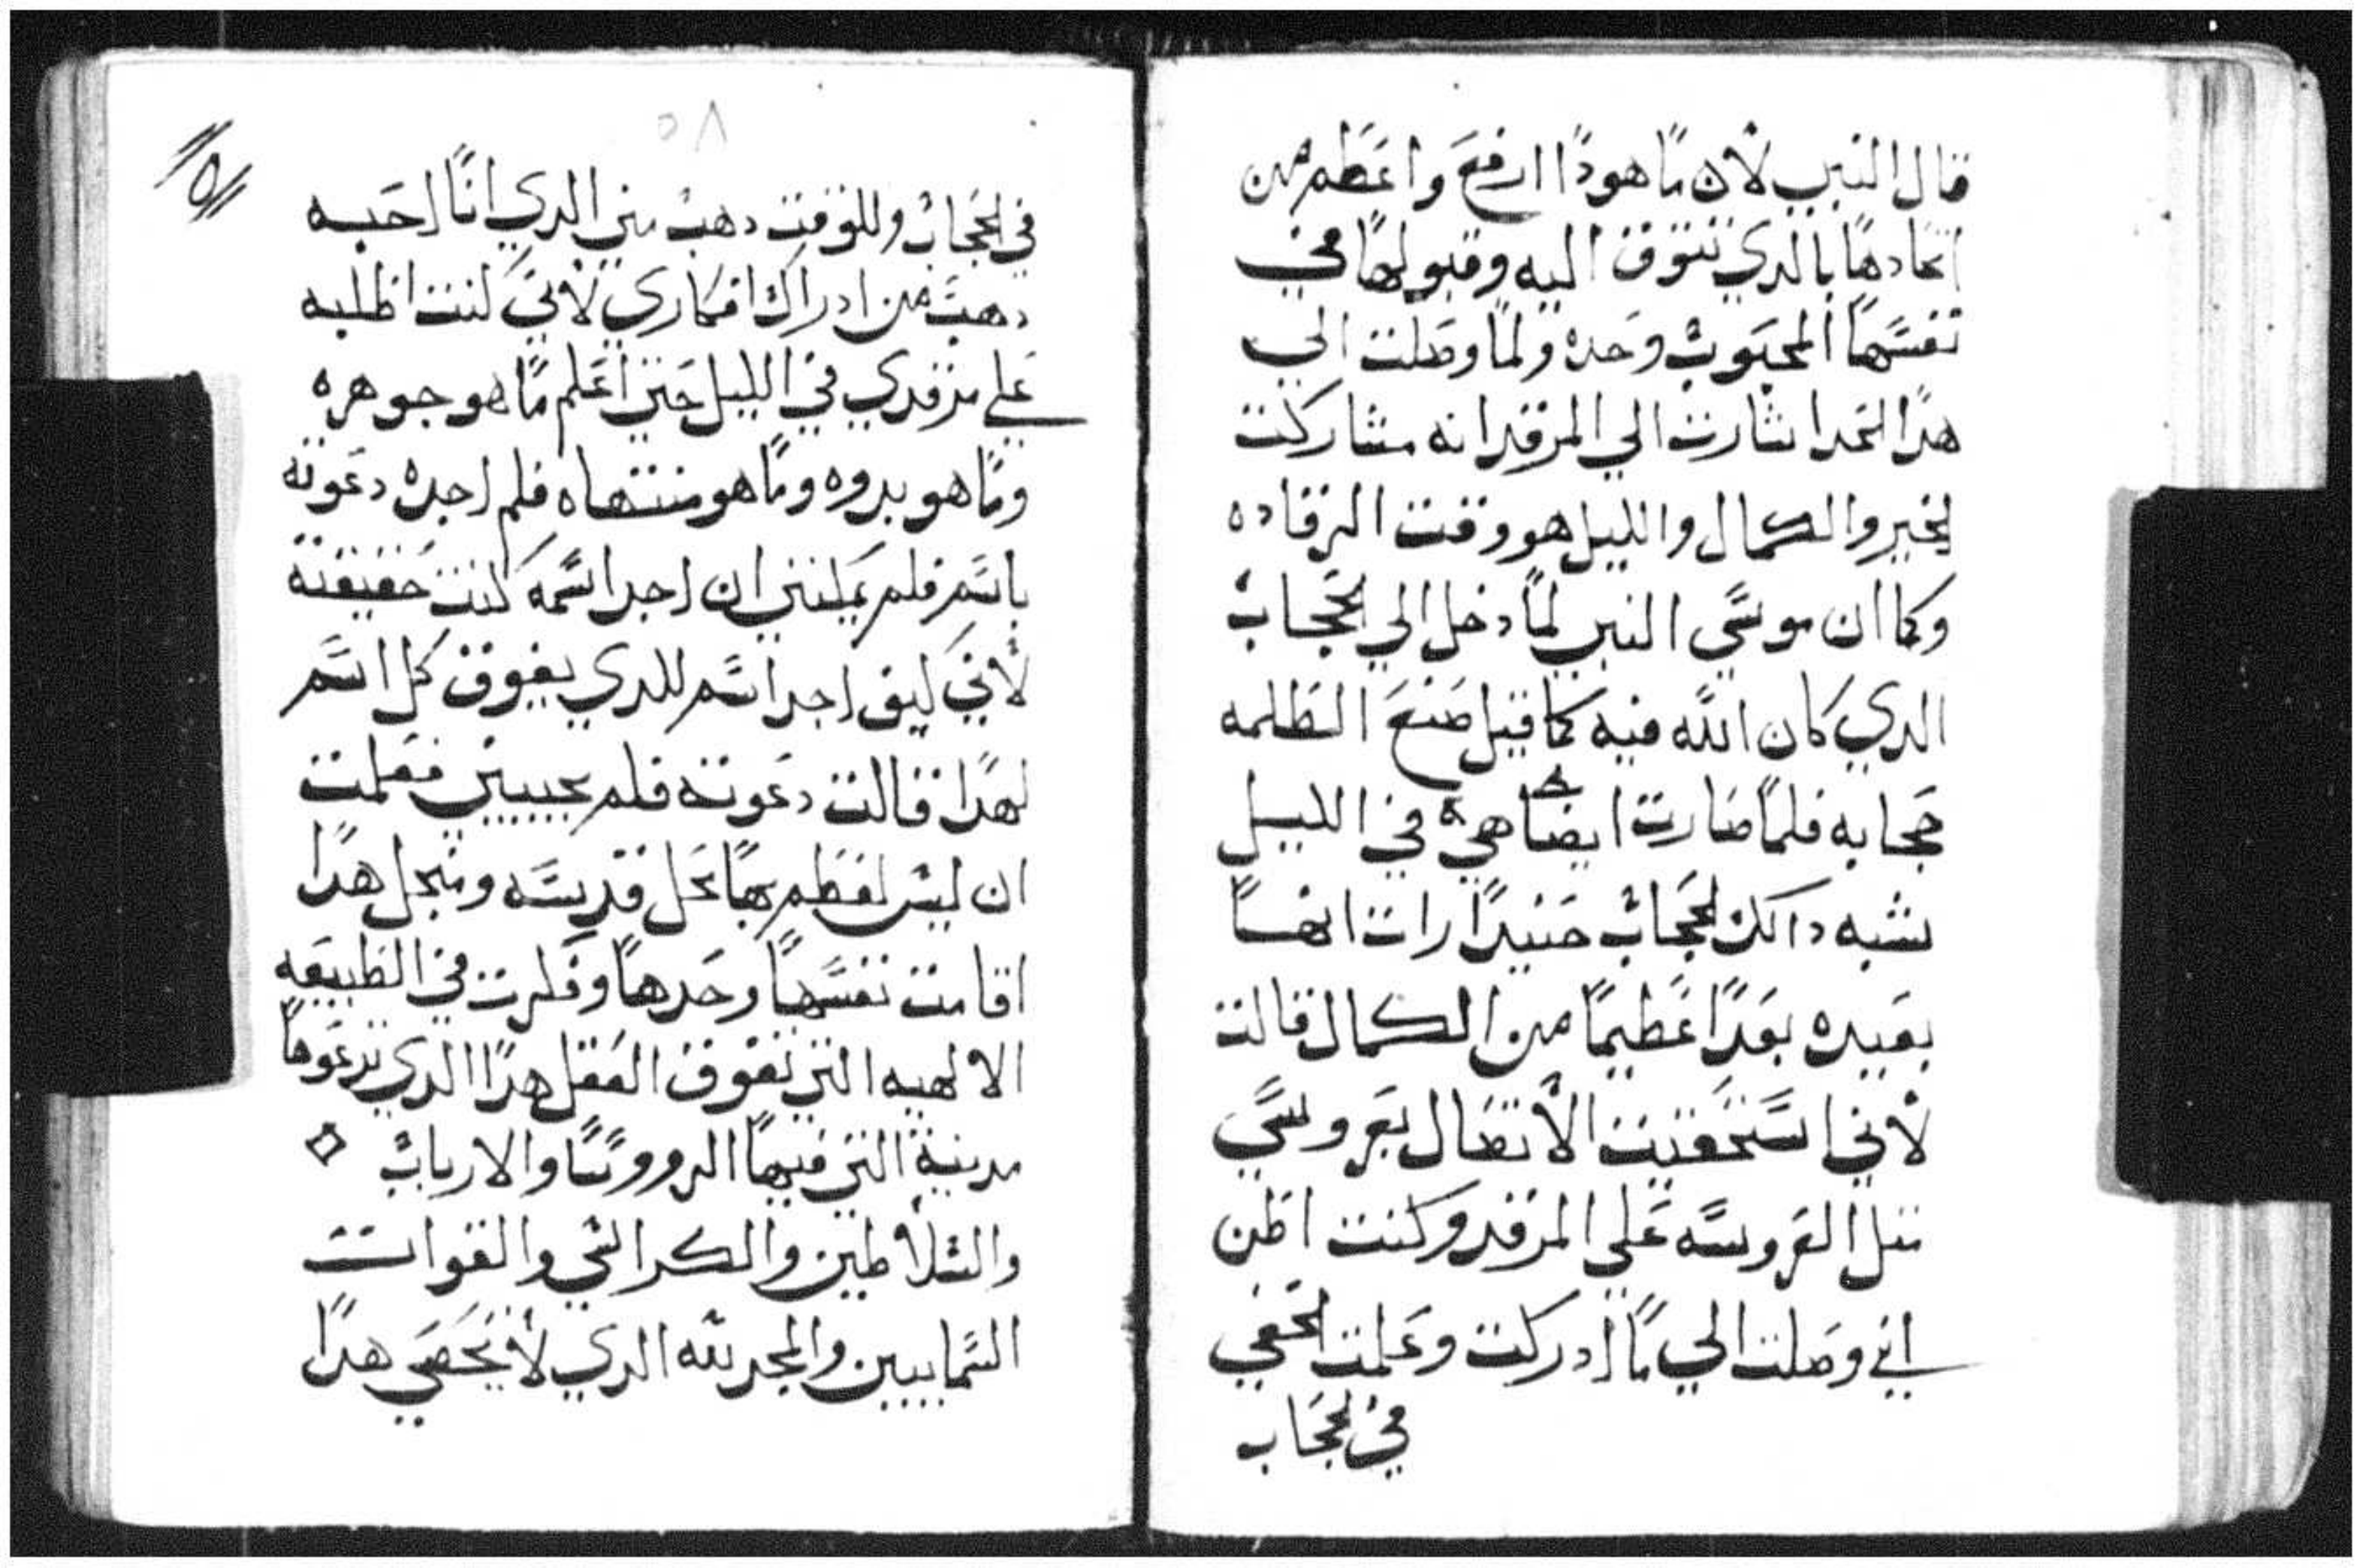 قال النبي لان ما هودا ارفع واعظم من
اتحادها بالدي تتوق اليه وقبولها في
نفسها المحبوب وحده ولما وصلت الي
هدا الحد اشارت الي المرقد انه مشاركت
الخير والكمال والليل هو وقت الرقاده
وكما ان موسي النبي لما دخل الي الحجاب
الدي كان الله فيه كما قيل صنع الظلمه
حجابه فلما صارت ايضا هي في الليل
بشبه دالك الحجاب حنيدا رات انها
بعيده بعدا عظيما من الكمال قالت
لاني استحقيت الاتصال بعروسي
مثل العروسه علي المرقد وكنت اظن
اني وصلت الي ما ادركت وعلمت الخفي
في الحجاب
٥٨
في الحجاب وللوقت دهب مني الدي انا احبه
دهب من ادراك افكاري لاني كنت اطلبه
علي مرقدي في الليل حتي اعلم ما هو جوهره
وما هو بدوه وما هو منتهاه فلم اجده دعوته
باسم فلم يمكنني ان اجد اسمه كنت حقيقته
لاني كيف اجد اسم للدي يفوق كل اسم
لهدا قالت دعوته فلم يجيبني فعلمت
ان ليس لعظم بهاء كل قديسه ومنجل هدا
اقامت نفسها وحدها وفكرت في الطبيعه
الالهيه التي تفوق العقل هدا الدي تدعوها
مدينة التي فيها الرووسا والارباب
والسلاطين والكراسي والقوات
السمايين والمجد لله الدي لا يحصي هدا